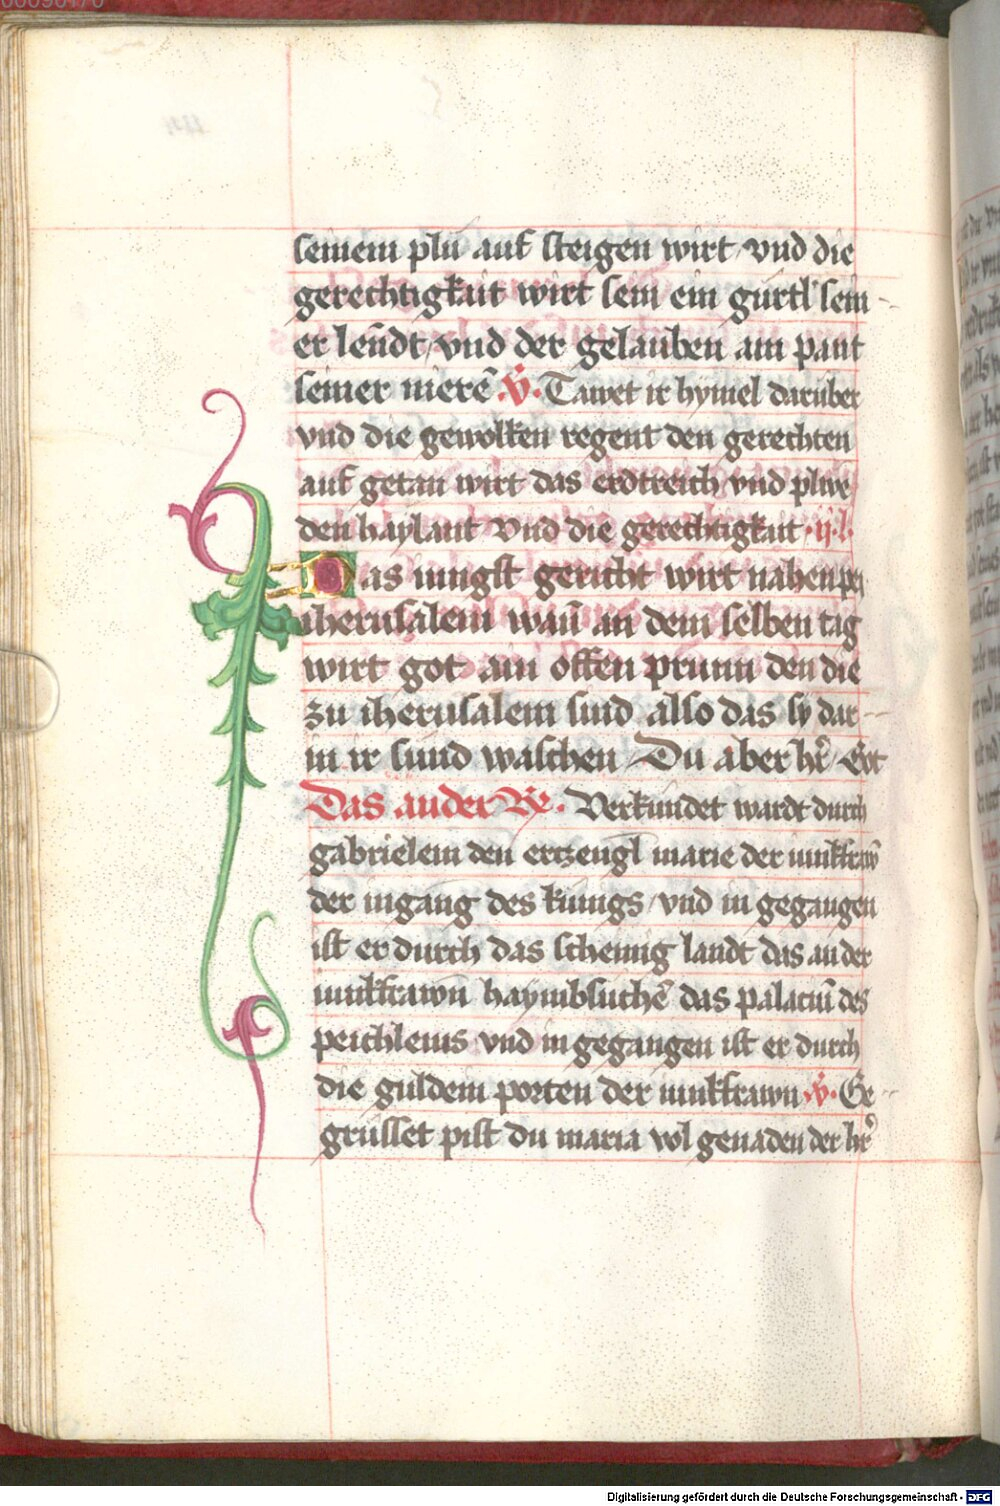 seinem plu auf steigen wirt vnd die
gerechtigkait wirt sein ein gurtl sein
er lendt / vnd der gelauben ain pant
seiner nierē ℣. Tawet ir hymel darüber
vnd die gewolken regent den gerechten
auf getan wirt das erdtreich vnd plwe
den haylant Vnd die gerechtigkait · ij · l ·
Das iungst gericht wirt nahen pey
iherusalem wañ an dem selben tag
wirt got ain offen prunn den die
zu iherusalem sind also das sy dar
in ir sund waschen / Du aber hr̄ / Got
Das ander Re. Verkundet wardt durch
gabrielem den erczengl marie der iunkfraw
der ingang des kunigs / vnd in gegangen
ist er durch das scheinig landt das ander
iunkfrawn haymbsuchē das palaciū des
peichleins vnd in gegangen ist er durch
die guldein porten der iunkfrawn ℣. Ge
grüsset pist du maria vol genaden der hr̄
Digitalisierung gefördert durch die Deutsche Forschungsgemeinschaft - DFG